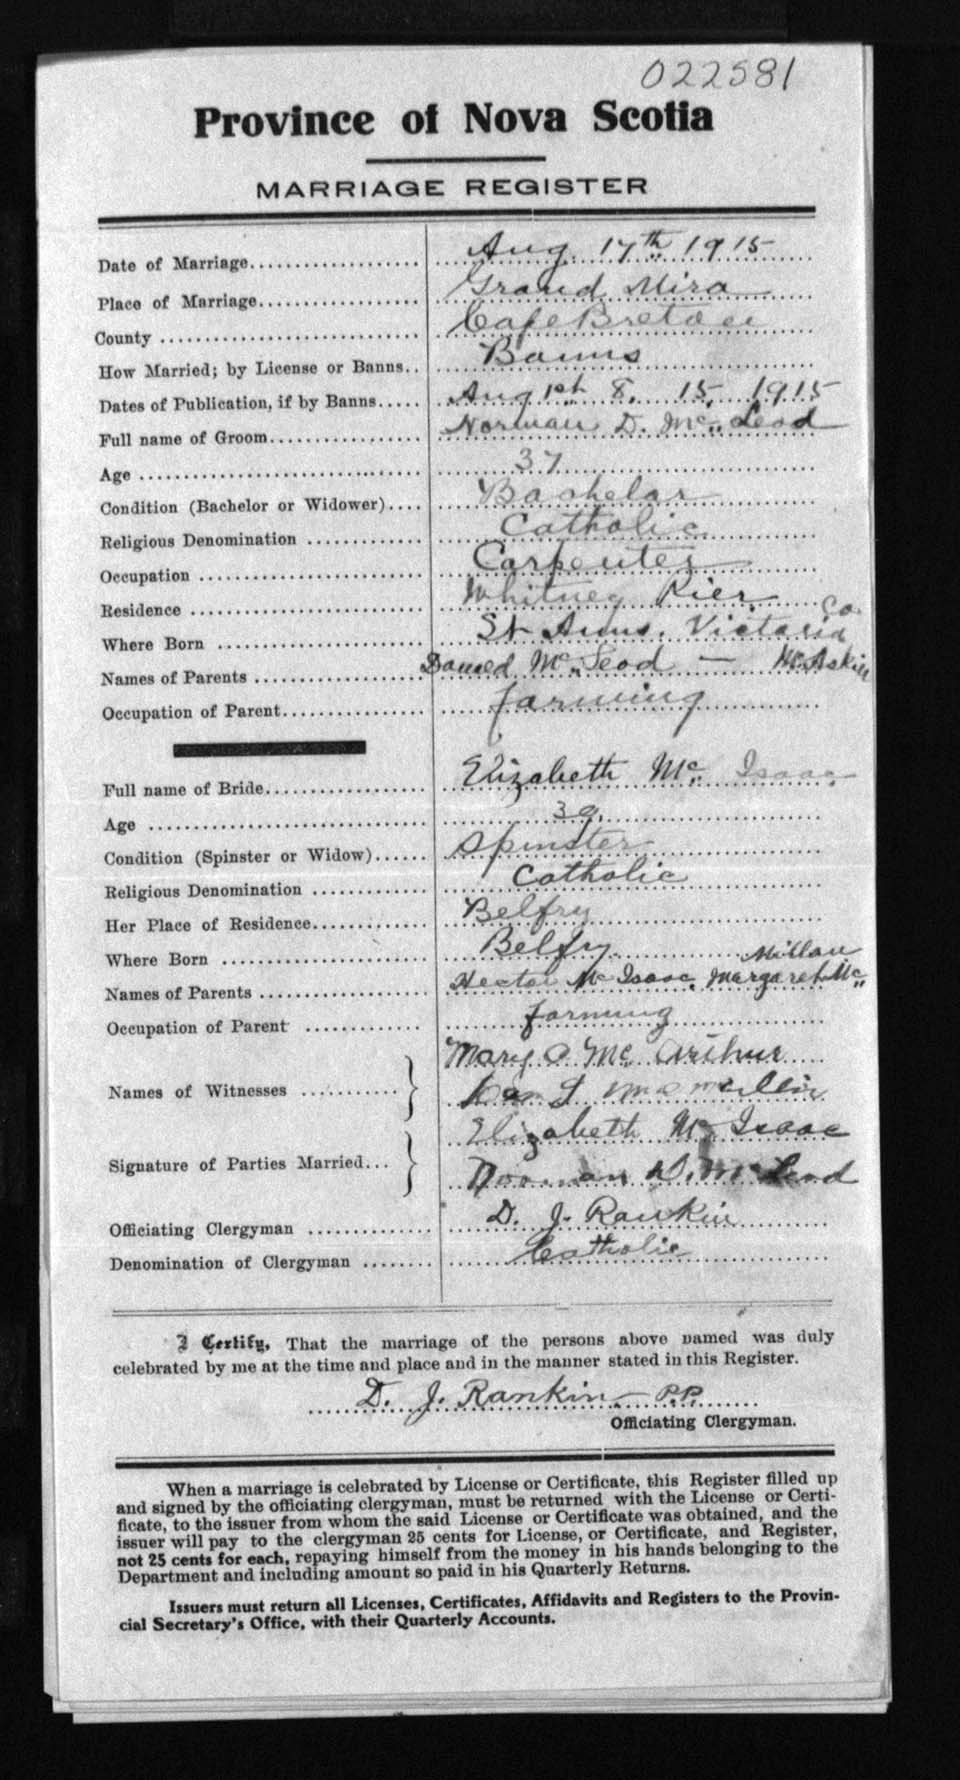 022581
Province of Nova Scotia
MARRIAGE REGISTER
Date of Marriage.................... Aug. 17th 1915
Place of Marriage................... Grand Mira
County ............................. Cape Breton
How Married; by License or Banns.. Banns
Dates of Publication, if by Banns..... Aug 1st 8, 15, 1915
Full name of Groom.................. Norman D. Mc Leod
Age ................................ 37
Condition (Bachelor or Widower).... Bachelor
Religious Denomination ............. Catholic
Occupation ......................... Carpenter
Residence .......................... Whitney Pier
Where Born ......................... St Anns, Victoria Co.
Names of Parents ................... Mc Leod — McAskill
Occupation of Parent................ farming
Full name of Bride.................. Elizabeth Mc Isaac
Age ................................ 39
Condition (Spinster or Widow)...... Spinster
Religious Denomination ............. Catholic
Her Place of Residence.............. Belfry
Where Born ......................... Belfry
Names of Parents ................... Hector Mc Isaac, Margaret Mc Millan
Occupation of Parent ............... farming
Names of Witnesses ............ Mary Mc Arthur
Signature of Parties Married... Elizabeth Mc Isaac
Norman D. Mc Leod
Officiating Clergyman .............. D. J. Rankin
Denomination of Clergyman ........ Catholic
I Certify, That the marriage of the persons above named was duly
celebrated by me at the time and place and in the manner stated in this Register.
D. J. Rankin P.P.
Officiating Clergyman.
When a marriage is celebrated by License or Certificate, this Register filled up
and signed by the officiating clergyman, must be returned with the License or Certi-
ficate, to the issuer from whom the said License or Certificate was obtained, and the
issuer will pay to the clergyman 25 cents for License, or Certificate, and Register,
not 25 cents for each, repaying himself from the money in his hands belonging to the
Department and including amount so paid in his Quarterly Returns.
Issuers must return all Licenses, Certificates, Affidavits and Registers to the Provin-
cial Secretary's Office, with their Quarterly Accounts.